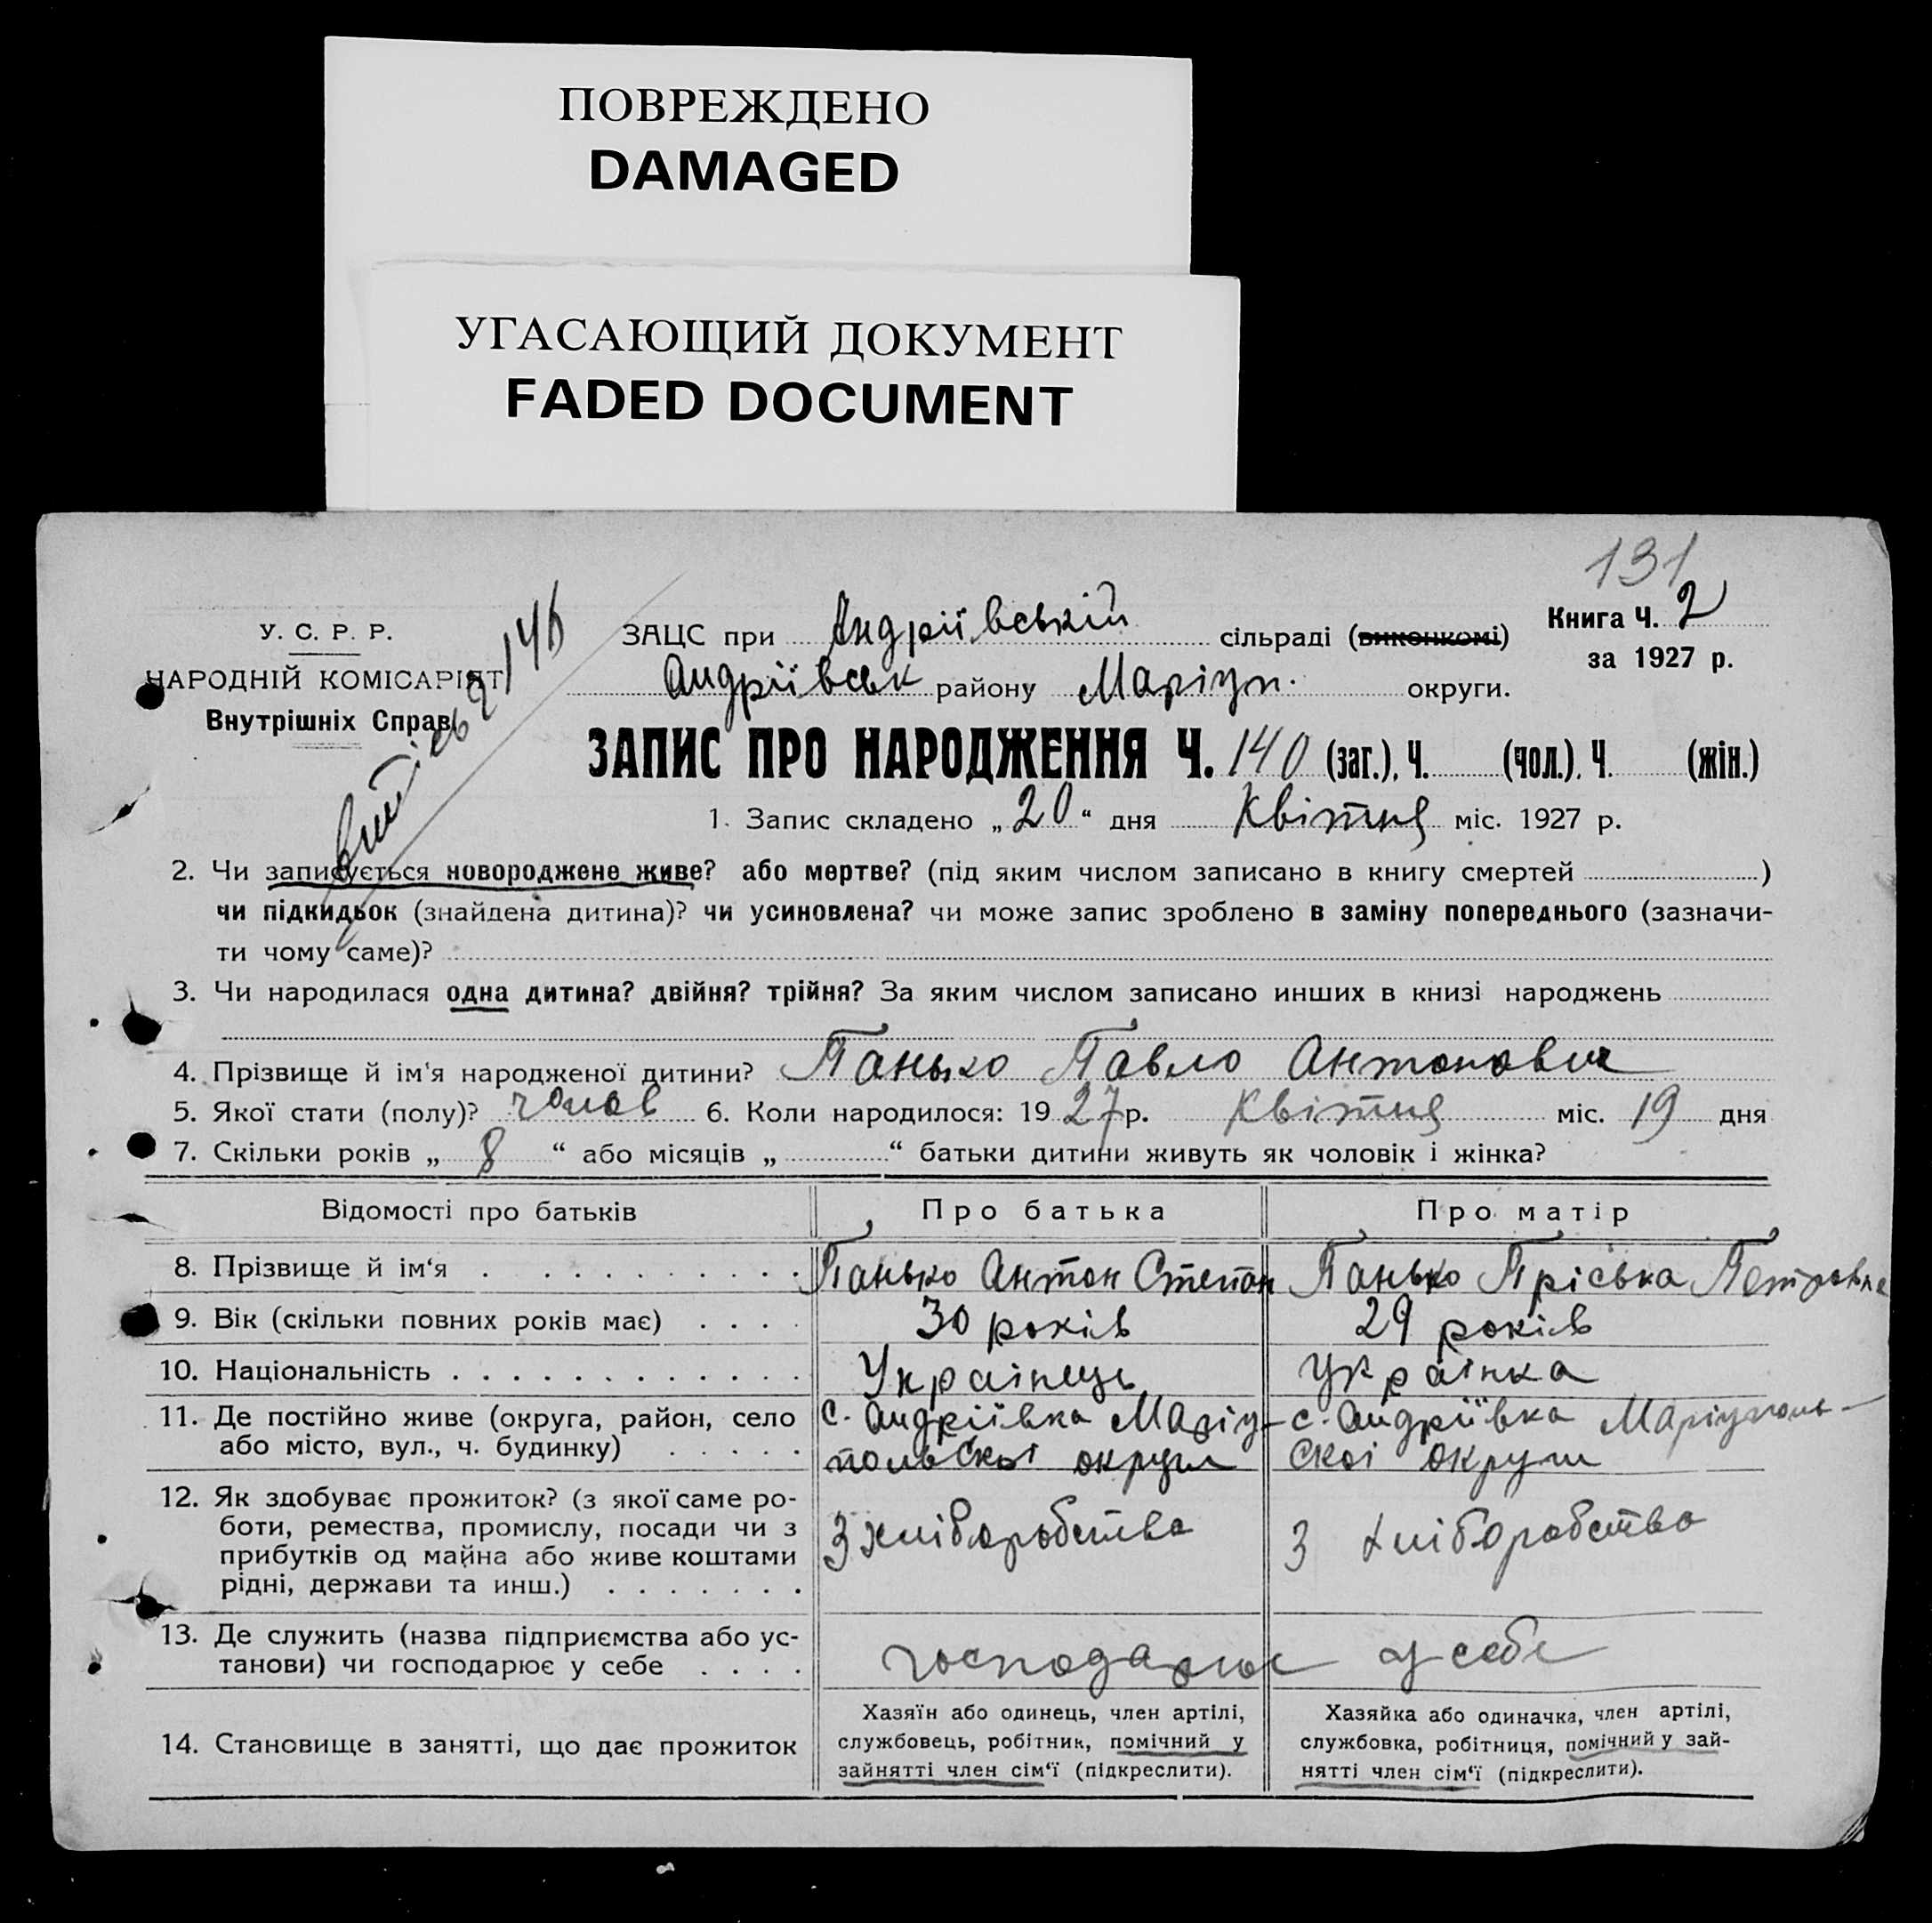 ПОВРЕЖДЕНО
DAMAGED
УГАСАЮЩИЙ ДОКУМЕНТ
FADED DOCUMENT
131
У. С. Р. Р.
НАРОДНІЙ КОМІСАРІЯТ
Внутрішніх Справ
ЗАЦС при Андріївській сільраді (виконкомі)
Андріївськ району Маріуп. округи.
Книга Ч. 2
за 1927 р.
ЗАПИС ПРО НАРОДЖЕННЯ Ч. 140 (заг.), Ч. (чол.), Ч. (жін.)
1. Запис складено „20“ дня Квітня міс. 1927 р.
2. Чи записується новороджене живе? або мертве? (під яким числом записано в книгу смертей )
чи підкидьок (знайдена дитина)? чи усиновлена? чи може запис зроблено в заміну попереднього (зазначи-
ти чому саме)?
3. Чи народилася одна дитина? двійня? трійня? За яким числом записано инших в книзі народжень
4. Прізвище й ім'я народженої дитини? Панько Павло Антонович
5. Якої стати (полу)? чолов 6. Коли народилося: 1927 р. Квітня міс. 19 дня
7. Скільки років „ 8 “ або місяців „ “ батьки дитини живуть як чоловік і жінка?
Відомості про батьків Про батька Про матір
8. Прізвище й ім‘я . . . . . . . . . . Панько Антон Степан Панько Пріська Петровна
9. Вік (скільки повних років має) . . . . 30 років 29 років
10. Національність . . . . . . . . . . . . Украінець Украінка
11. Де постійно живе (округа, район, село
або місто, вул., ч. будинку) . . . . .
с. Андріївка Маріу-
польскоі округи
с. Андріївка Маріуполь-
скоі округи
12. Як здобуває прожиток? (з якої саме ро-
боти, ремества, промислу, посади чи з
прибутків од майна або живе коштами
рідні, держави та инш.) . . . . . . .
З хліборобства
З хліборобства
13. Де служить (назва підприємства або ус-
танови) чи господарює у себе . . . .
господарює у себе
14. Становище в занятті, що дає прожиток
Хазяїн або одинець, член артілі,
службовець, робітник, помічний у
зайнятті член сім‘ї (підкреслити).
Хазяйка або одиначка, член артілі,
службовка, робітниця, помічний у зай-
нятті член сім‘ї (підкреслити).